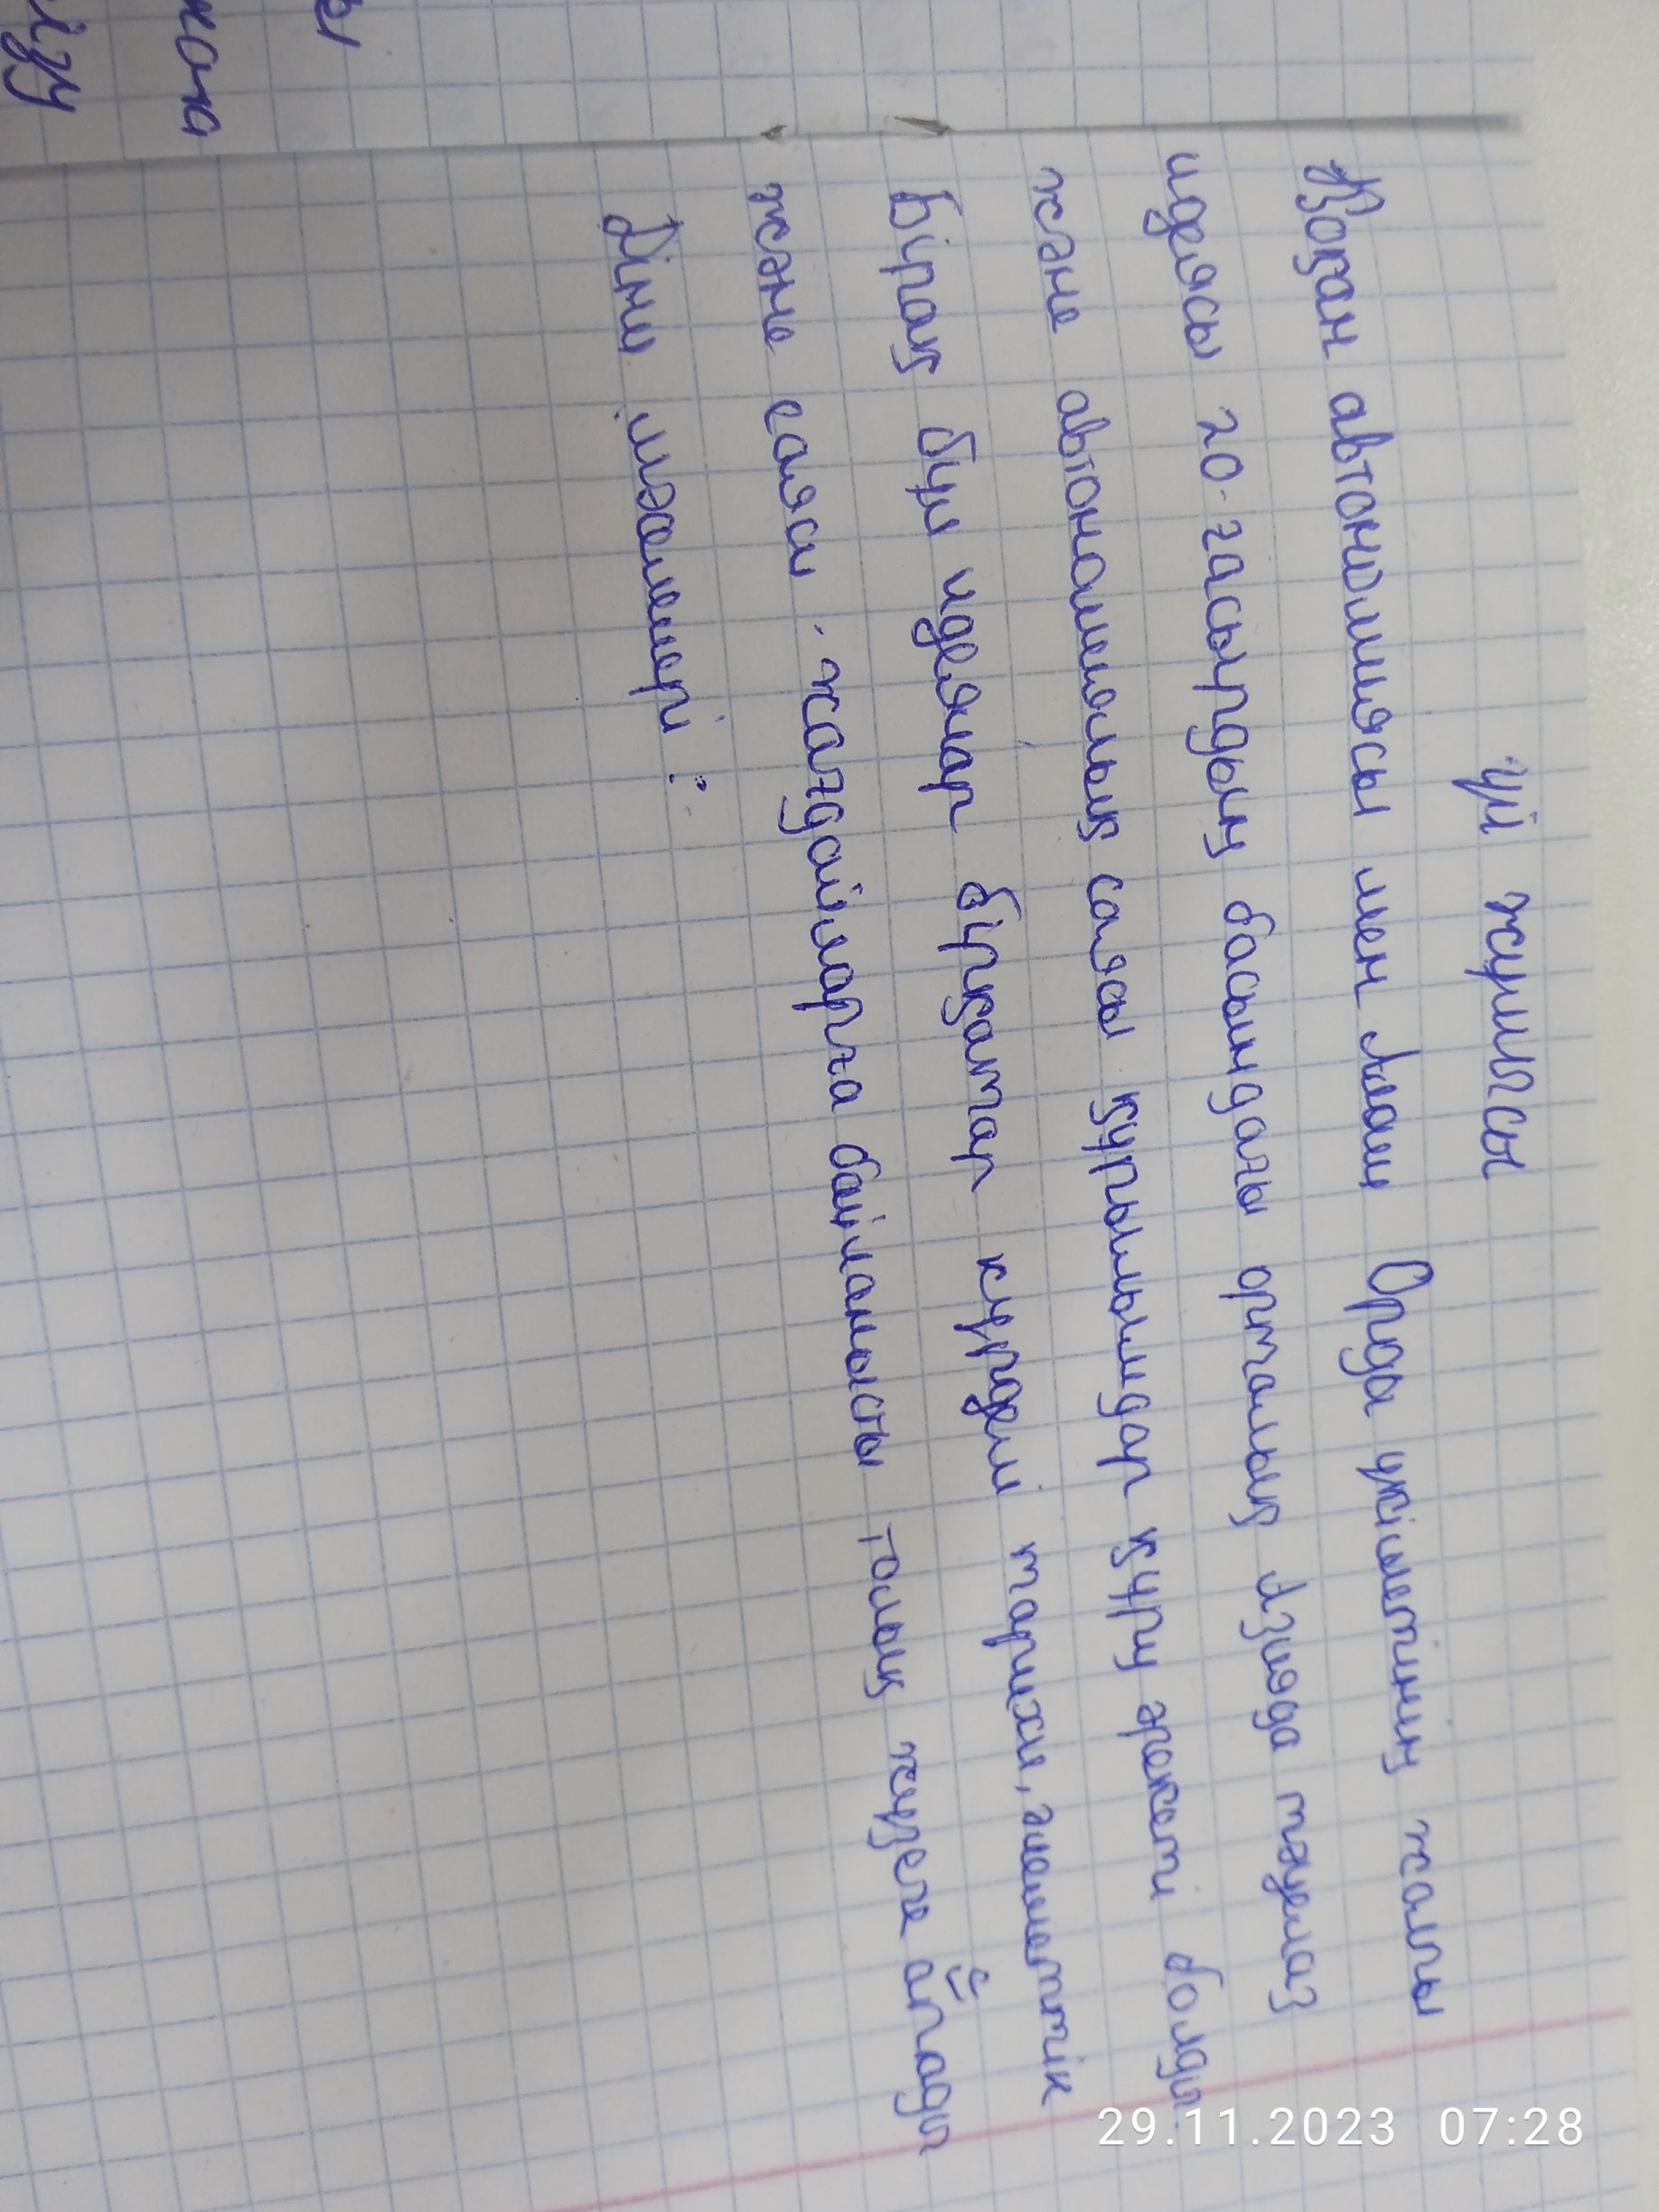 үй жұмысы
Қоқан автономиясы мен Алаш Орда үкіметінің жалпы
идеясы 20-ғасырдың басындағы орталық Азияда тәуелсіз
және автономиялық саяси құрылымдар құруға әрекеті болды.
Бірақ бұл идеялар бірқатар күрделі тарихи, әлеуметтік
және саяси жағдайларға байланысты толық жүзеге аспады
Діни мәселелері:
ы
нома
ізу
29.11.2023 07:28